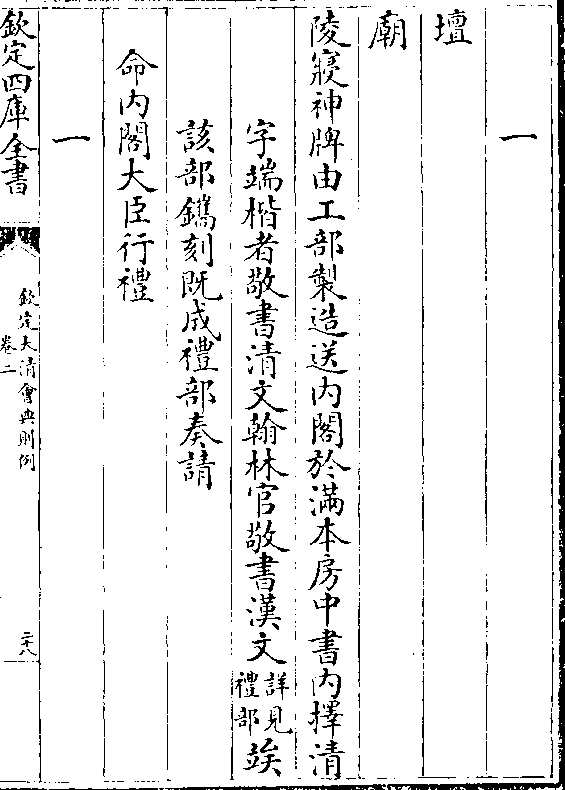 一
壇
廟
陵寢神牌由工部製造送内閣於滿本房中書内擇清
字端楷者敬書清文翰林官敬書漢文詳見禮部竢
該部鐫刻既成禮部奏請
命内閣大臣行禮
一
欽定四庫全書
欽定大清會典則例
卷二
二十八